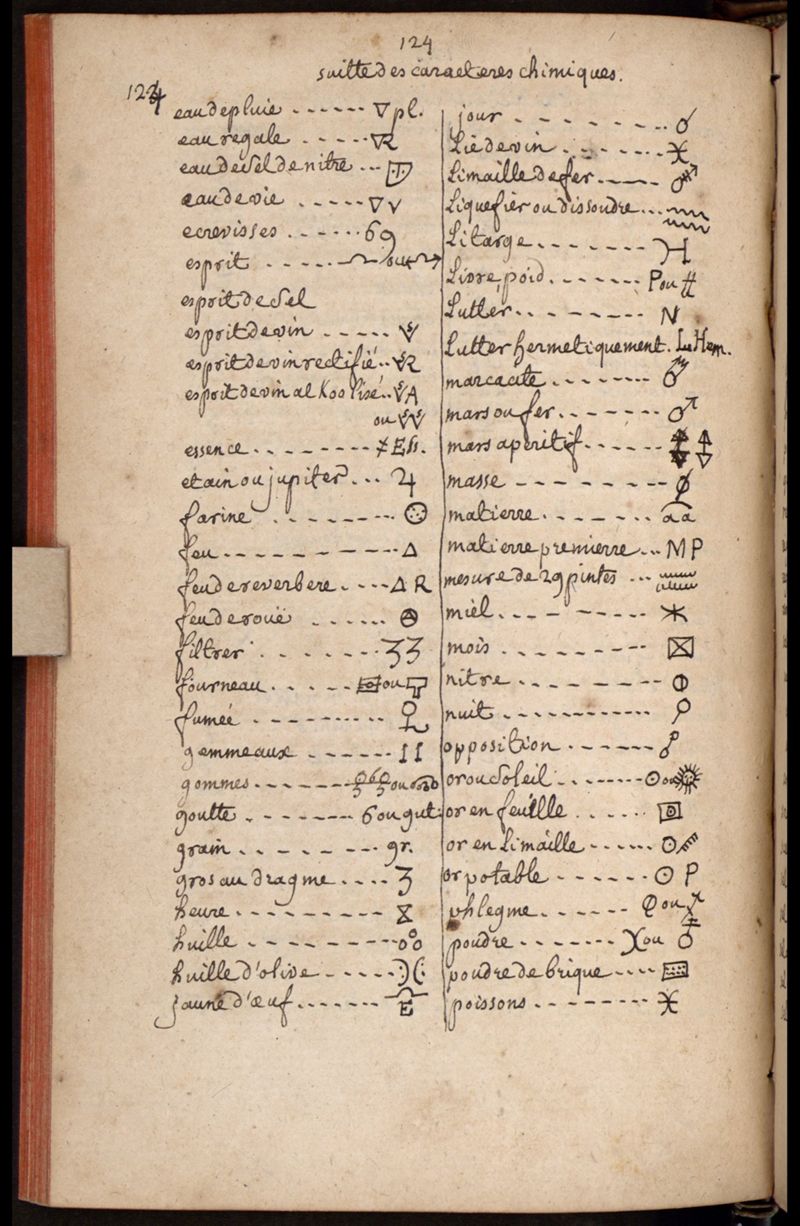 124
suitte des caracteres chimiques.
124
eau de pluie ------ ▽pl.
eau regale ----- ▽R
eau de sel de nitre ---
eau de vie ----- ▽V
ecrevisses ------ 69
esprit ----- ou
esprit de sel
esprit de vin -----
esprit de vin rectifié --
esprit de vin alkoolisé --
ou
essence -------- Ess.
etain ou jupiter --- ♃
farine --------
feu --------- △
feu de reverbere ---- △ R
feu de roüe ------
filtrer -------- 33
fourneau ----- ou
fumeé ---------
gemmeaux ------
gommes ------- ou
goutte ------- 6 ou gut.
grain -------- gr.
gros au dragme ---- 3
heure ---------
huille --------- o°o
huille d'olive -----
jaune d'œuf ------
jour -------- ♂
Lie de vin -------
Limaille de fer ---- ♂
Liquefier ou dissoudre ---
Litarge -------
Livre poid ------- P ou #
Lutter -------- N
Lutter hermetiquement. Lu Hem.
marcacite -------
mars ou fer ------- ♂
mars aperitif ------
masse --------
matierre -------
matierre premierre --- M P
mesure de 29 pintes ---
miel --------
mois --------- ⊠
nitre -------- ⦶
nuit -----------
opposition ------ ☍
or ou Soleil ------ ☉ ou
or en feuille ------
or en Limaille ------ ☉
or potable ------ ☉ P
phlegme ------ ou
poudre ------- ou
poudre de brique ----
poissons -------- ♓